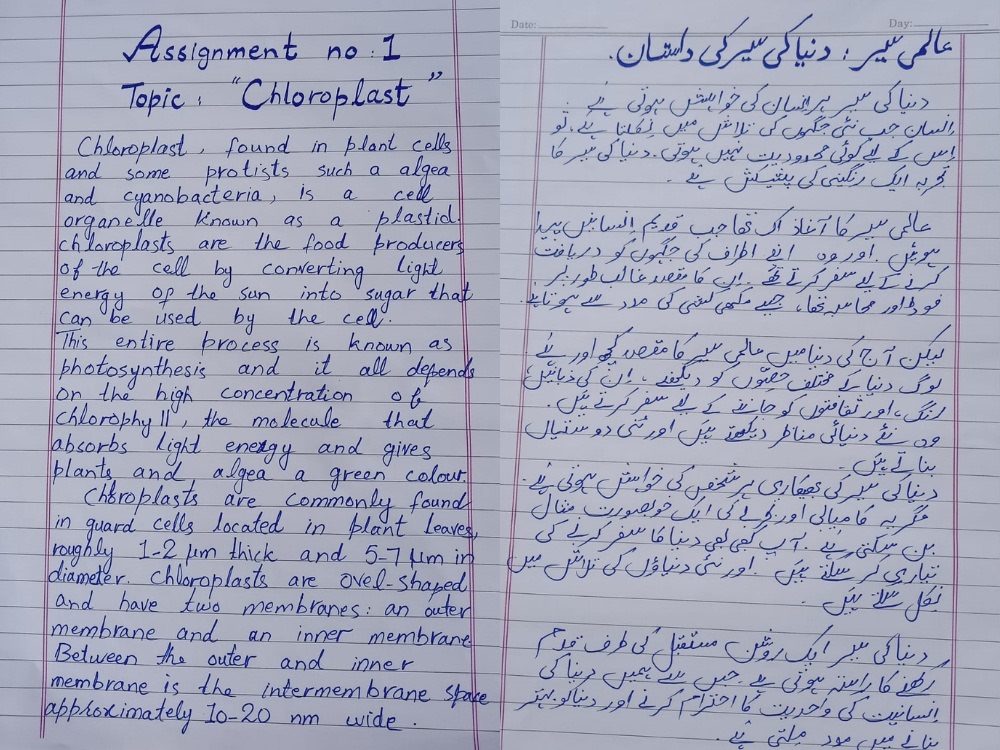 Assignment no : 1
Topic : "Chloroplast"
Chloroplast, found in plant cells
and some protists such a algea
and cyanobacteria, is a cell
organelle known as a plastid.
chloroplasts are the food producers
of the cell by converting light
energy of the sun into sugar that
can be used by the cell.
This entire process is known as
photosynthesis and it all depends
on the high concentration of
chlorophyll, the molecule that
absorbs light energy and gives
plants and algea a green colour.
Chloroplasts are commonly found
in guard cells located in plant leaves,
roughly 1-2 µm thick and 5-7 µm in
diameter. Chloroplasts are ovel-shaped
and have two membranes: an outer
membrane and an inner membrane
Between the outer and inner
membrane is the intermembrane space
approximately 10-20 nm wide.
Date: Day:
عالمی سیر : دنیا کی سیر کی داستان.
دنیا کی سیر ہر انسان کی خواہش ہوتی ہے.
انسان جب نئی جگہوں کی تلاش میں نکلتا ہے، تو
اس کے لیے کوئی محدودیت نہیں ہوتی. دنیا کی سیر کا
تجربہ ایک رنگینی کی پیشکش ہے.
عالمی سیر کا آغاز اک تھا جب قدیم انسانیں پیدا
ہوئیں اور وہ اپنے اطراف کی جگہوں کو دریافت
کرنے کے لیے سفر کرتے تھے. ان کا مقصد غالب طور پر
فوڈ اور محاسبہ تھا، جیسے کی مدد سے ہوتا ہے.
لیکن آج کی دنیا میں عالمی سیر کا مقصد کچھ اور ہے
لوگ دنیا کے مختلف حصوں کو دیکھنے، ان کی
رنگ، اور ثقافتوں کو جاننے کے لیے سفر کرتے ہیں.
وہ نئے دنیائی مناظر دیکھتے ہیں اور نئی دوستیاں
بناتے ہیں.
دنیا کی سیر کی ہر شخص کی خواہش ہوتی ہے.
مگر یہ کامیابی اور کی ایک خوبصورت مثال
بن سکتی ہے. آپ کبھی بھی دنیا کا سفر کرنے کی
تیاری کر سکتے ہیں اور نئی دنیاؤں کی تلاش میں
نکل سکتے ہیں.
دنیا کی سیر ایک روشن مستقبل کی طرف قدم
رکھنے کا راستہ ہوتی ہے. جس سے ہمیں دنیا کی
انسانیت کی واحدیت کا احترام کرنے اور دنیا کو بہتر
بنانے میں مدد ملتی ہے.